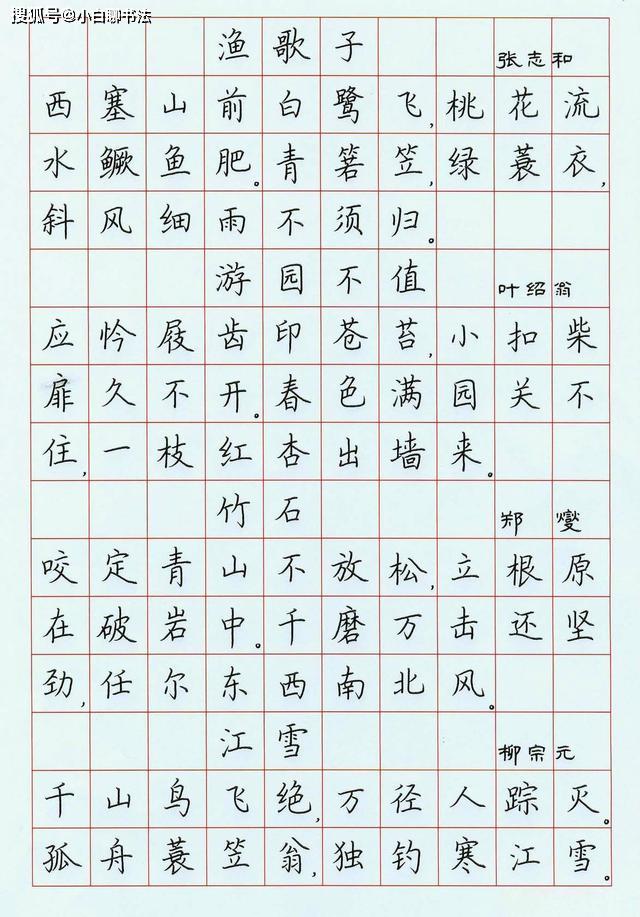 搜狐号@小白聊书法
渔歌子 张志和
西塞山前白鹭飞,桃花流
水鳜鱼肥。青箬笠,绿蓑衣,
斜风细雨不须归。
游园不值 叶绍翁
应怜屐齿印苍苔,小扣柴
扉久不开。春色满园关不
住,一枝红杏出墙来。
竹石 郑燮
咬定青山不放松,立根原
在破岩中。千磨万击还坚
劲,任尔东西南北风。
江雪 柳宗元
千山鸟飞绝,万径人踪灭。
孤舟蓑笠翁,独钓寒江雪。